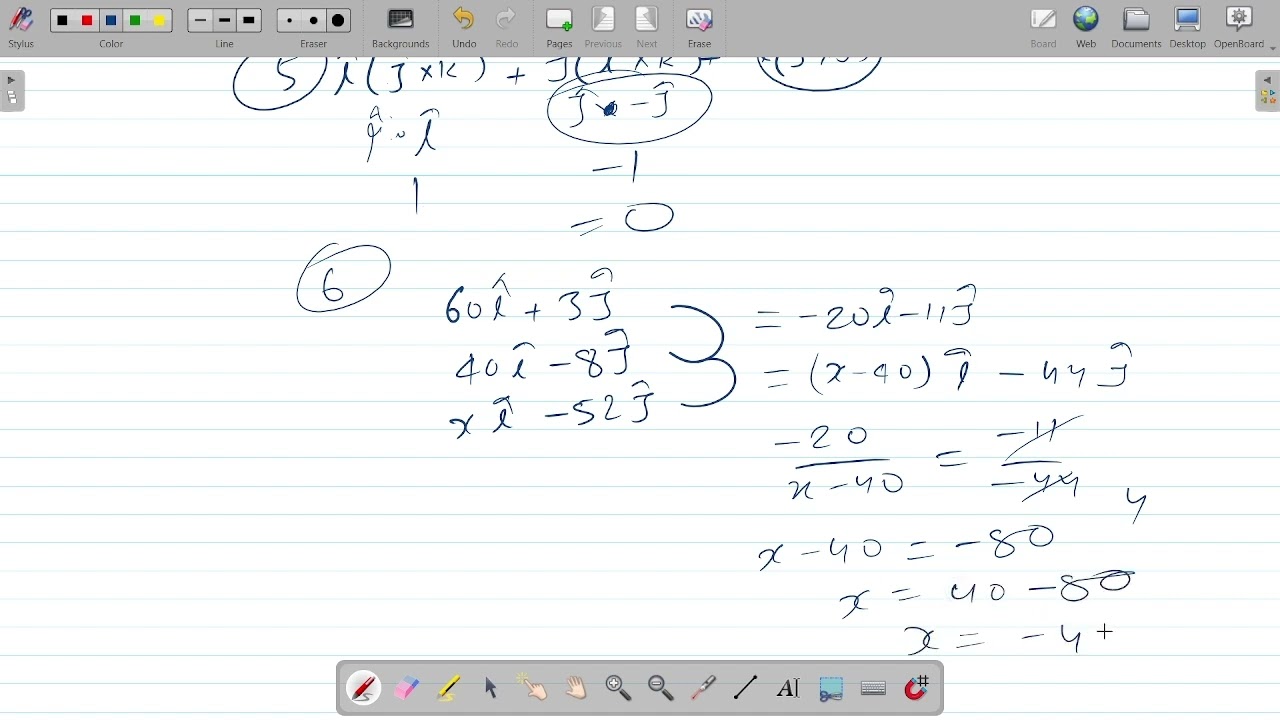 Stylus Color Line Eraser Backgrounds Undo Redo Pages Previous Next Erase Board Web Documents Desktop OpenBoard
5 î(ĵ×k) + ĵ(î×k)+
ĵ · -ĵ
î · î
1 -1
= 0
6
60î + 3ĵ = -20î-11ĵ
40î -8ĵ = (x-40) î - 44ĵ
xî -52ĵ
-20/x-40 = -11/-44 4
x -40 = -80
x = 40 -80
x = -4